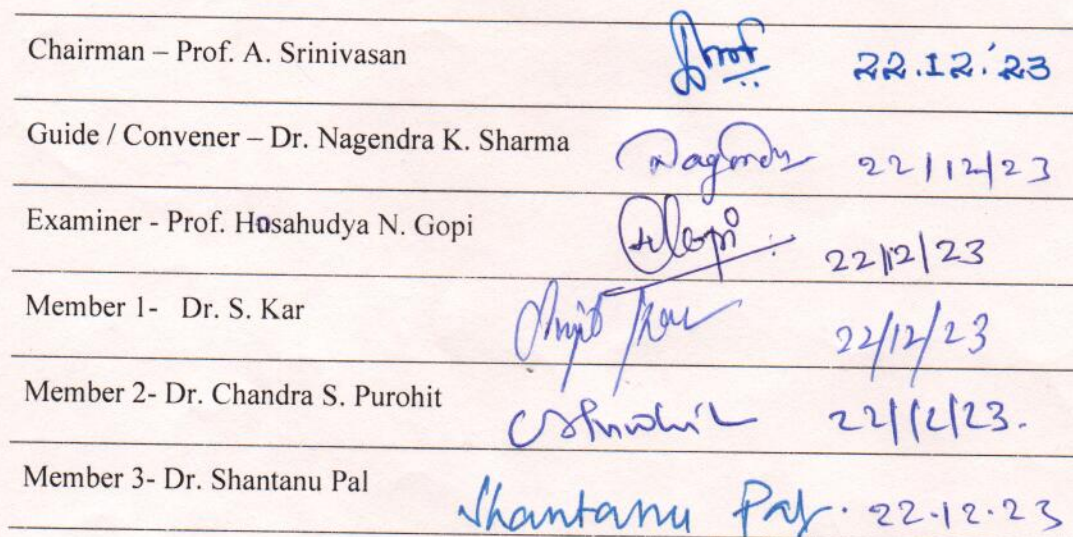 Chairman – Prof. A. Srinivasan 22.12.'23
Guide / Convener – Dr. Nagendra K. Sharma Nagendra 22/12/23
Examiner - Prof. Hosahudya N. Gopi Gopi 22/12/23
Member 1- Dr. S. Kar 22/12/23
Member 2- Dr. Chandra S. Purohit CSPurohit 22/12/23.
Member 3- Dr. Shantanu Pal Shantanu Pal. 22.12.23